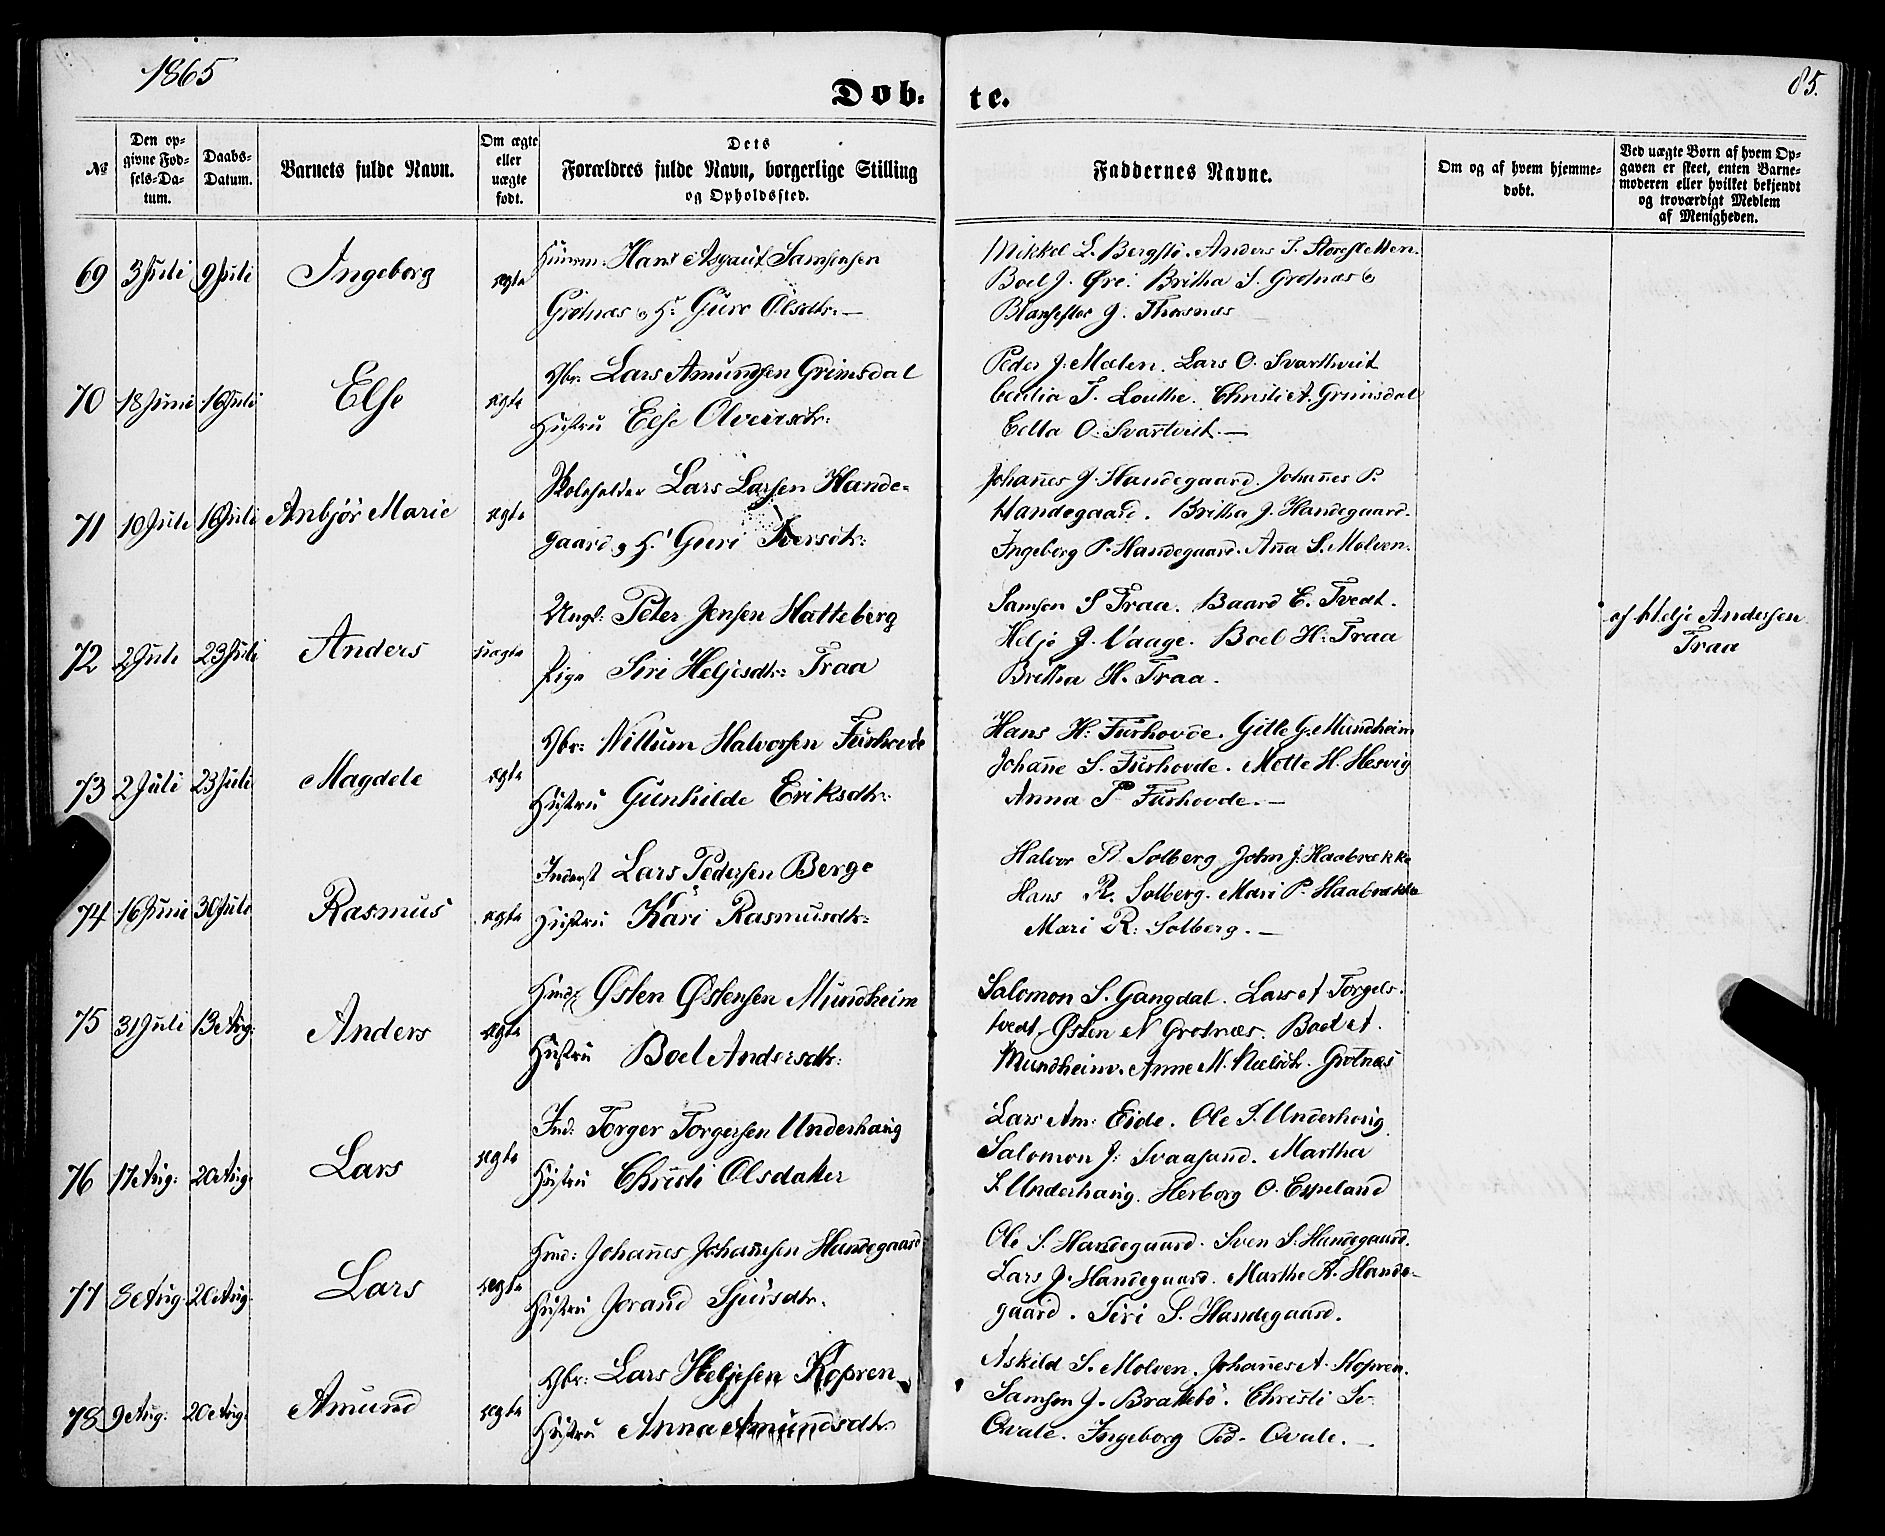 1865
85.
Døb-te.
№
Den opgivne Fødsels-Datum.
Daabs-Datum.
Barnets fulde Navn.
Om ægte eller uægte født.
Dets Forældres fulde Navn, borgerlige Stilling og Opholdssted.
Faddernes Navne.
Om og af hvem hjemmedøbt.
Ved uægte Børn af hvem Opgaven er skeet, enten Barnemoderen eller hvilket bekjendt og troværdigt Medlem af Menigheden.
69 3 Juli 9 Juli Ingeborg ægte
Huusm. Hans Asgaut Samsonsen
Grotnæs & H: Guro Olsdtr. —
Mikkel L. Bergstø. Anders S.
Boel J. Øre. Britha S. Grotnæs &
J. Thosnæs
70 18 Juni 16 Juli Else ægte
Gbr: Lars Amundsen Grimsdal
Hustru Else Olveirsdtr:
Peder J. Mælen. Lars O. Svarthveit
Cecilia T. Louthe. Christi A. Grimsdal
Cella O. Svartveit. —
71 10 Juli 16 Juli Anbjør Marie ægte
Skoleholder Lars Larsen Hande-
gaard & H. Guri Iversdtr:
Johañes J. Handegaard. Johañes P.
Handegaard. Britha J. Handegaard.
Ingeborg P. Handegaard. Aña S. Molven.
72 2 Juli 23 Juli Anders uægte
Ungk: Peter Jensen Hatteberg
Pige Siri Heljesdtr: Traa
Samson S Traa. Baard E. Tvedt.
Helje J. Vaage. Boel H. Traa
Britha H. Traa.
af Helje Andersen
Traa
73 2 Juli 23 Juli Magdele ægte
Gbr: Villum Halvorsen Furhovde
Hustru Gunhilde Eriksdtr:
Hans H. Furhovde. Gitle G. Mundheim
Johañe S. Furhovde. Mette H. Hesvig
Anna P Furhovde. —
74 16 Juni 30 Juli Rasmus ægte
Inderst Lars Pedersen Berge
Hustru Kari Rasmusdtr:
Halvor R. Solberg John J. Haabrække
Hans R. Solberg. Mari P. Haabrække
Mari R. Solberg. —
75 31 Juli 13 Aug: Anders ægte
Østen Østensen Mundheim
Hustru Boel Andersdtr:
Salomon S. Gangdal. Lars A Torgels-
tvedt. Østen N Grotnæs. Boel A.
Mundheim. Anne M. Nielsdtr. Grotnæs
76 17 Aug: 20 Aug. Lars ægte
Ind: Torger Torgersen Underhaug
Hustru Christi Olsdatter
Lars Am: Eide. Ole T. Underhoug
Salomon J: Svaasand. Martha
T. Underhaug. Herborg O. Espeland
77 8 Aug. 20 Aug. Lars ægte
Johañes Johañesen Handegaard
Hustru Jorand Sjursdtr.
Ole S. Handegaard. Sven S. Handegaard.
Lars J. Handegaard. Marthe A. Hande-
gaard. Siri S. Handegaard.
78 9 Aug: 20 Aug: Amund ægte
Gbr: Lars Heljesen Kopren
Hustru Anna Amundsdtr.
Askild S. Molven. Johañes A. Kopren.
Samson J. Brattebø. Christi Se-
Qvale. Ingeborg Ped- Qvale. —